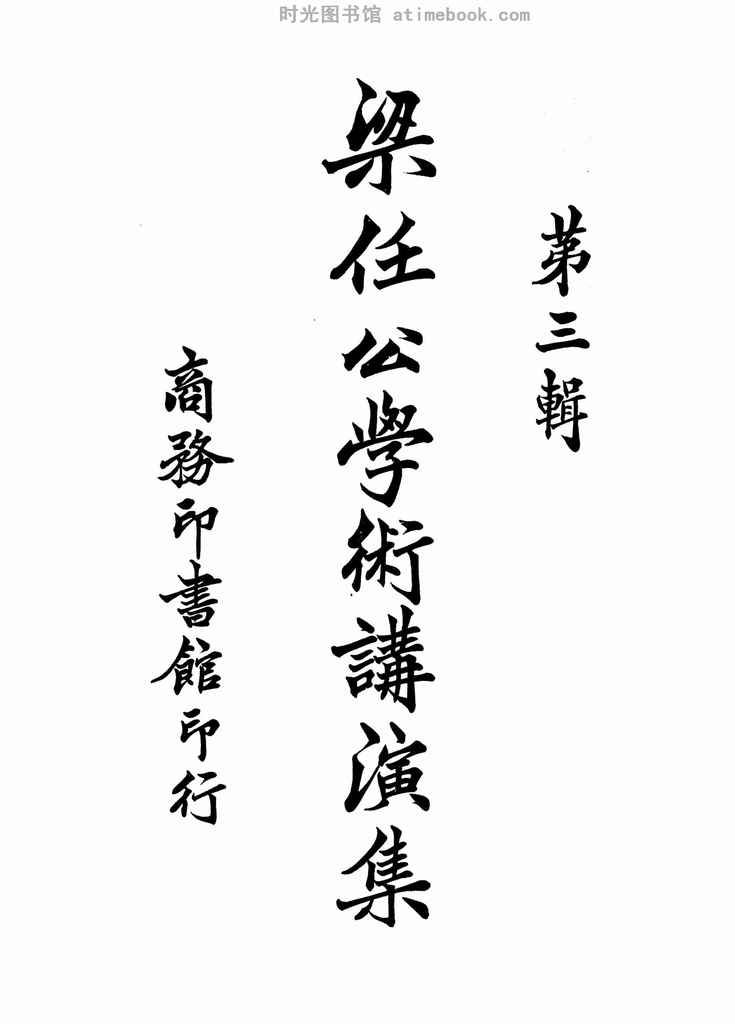 时光图书馆 atimebook.com
第三輯
梁任公學術講演集
商務印書館印行